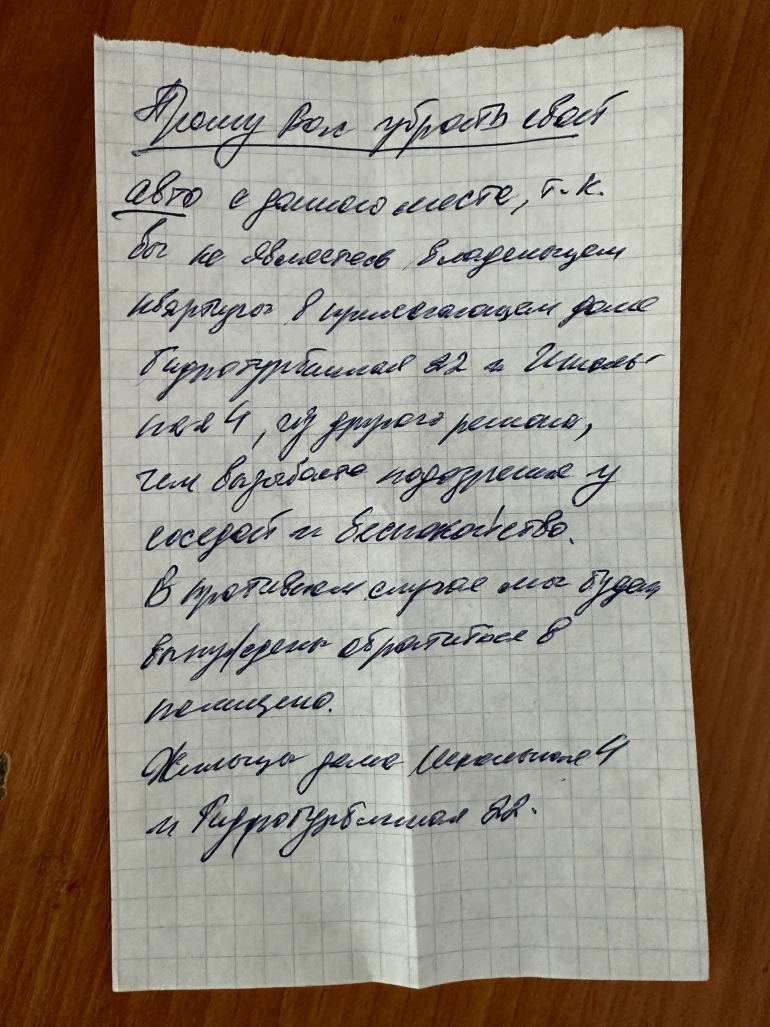 Прошу Вас убрать свой
авто с данного места, т.к.
Вы не являетесь владельцем
квартиры в прилегающем доме
Гидротурбинная 22 и Школь-
ная 4, из другого региона,
чем вызываете подозрения у
соседей и беспокойство.
В противном случае мы будем
вынуждены обратиться в
полицию.
Жильцы дома Школьная 4
и Гидротурбинная 22.